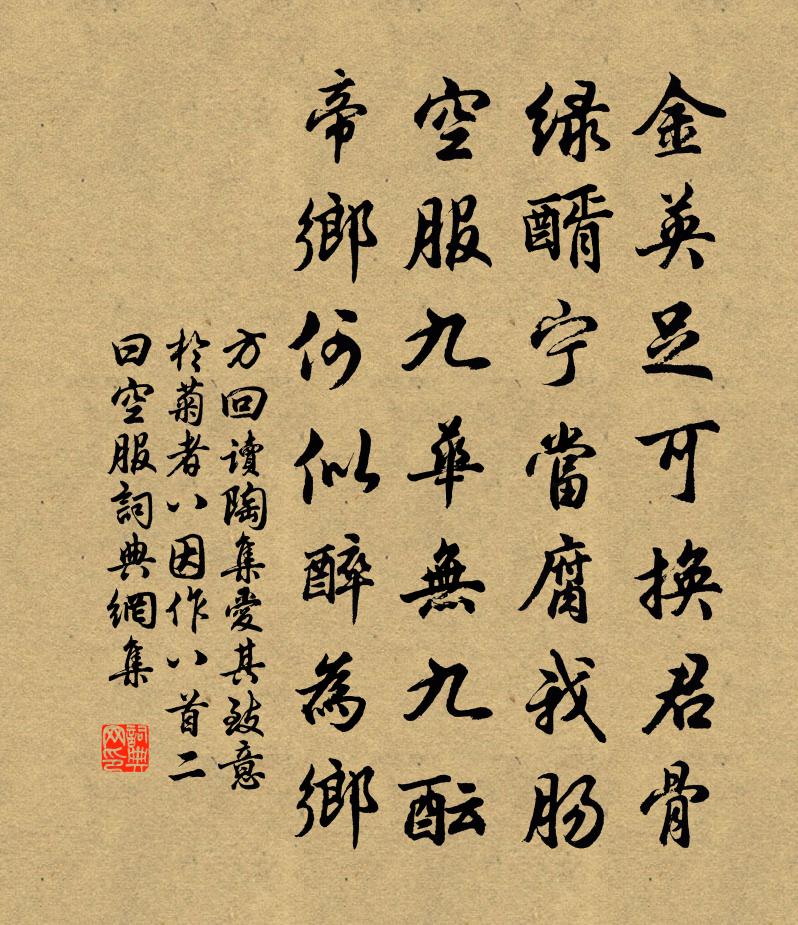 金英足可換君骨
绿醑宁當腐我肠
空服九華無九酝
帝鄉何似醉為鄉
方回讀陶集愛其致意
於菊者八因作八首二
曰空服詞典網集
詞典网印